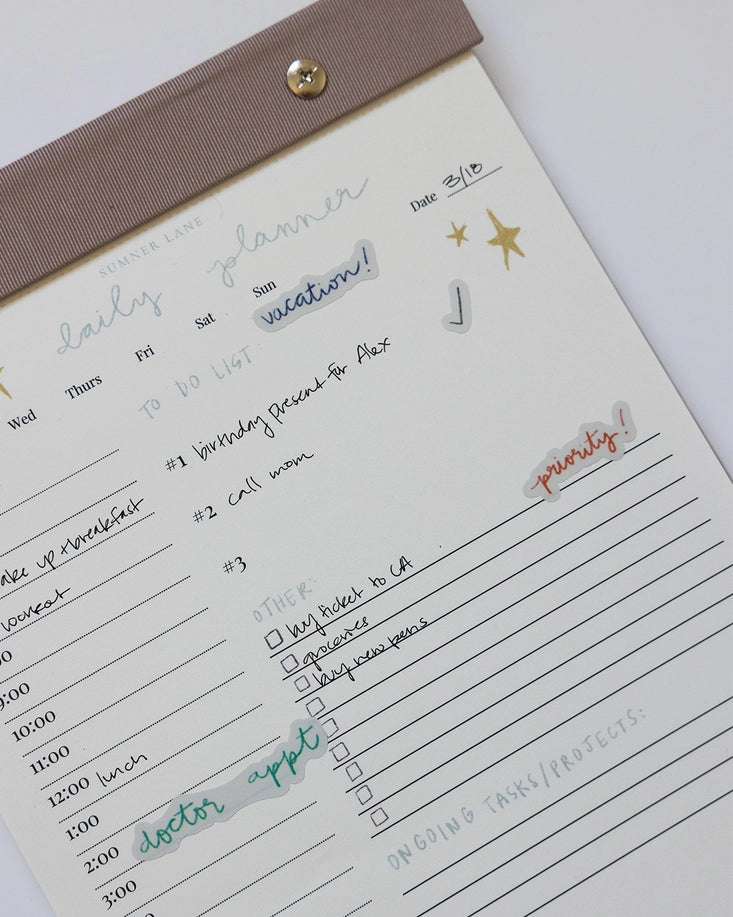 SUMNER LANE
daily planner
Date 3/18
Wed Thurs Fri Sat Sun
vacation!
TO DO LIST:
#1 birthday present for Alex
#2 call mom
#3
priority!
OTHER:
buy ticket to CA
groceries
buy new pens
ONGOING TASKS/PROJECTS:
up + breakfast
workout
9:00
10:00
11:00
12:00 lunch
1:00
2:00 doctor appt
3:00